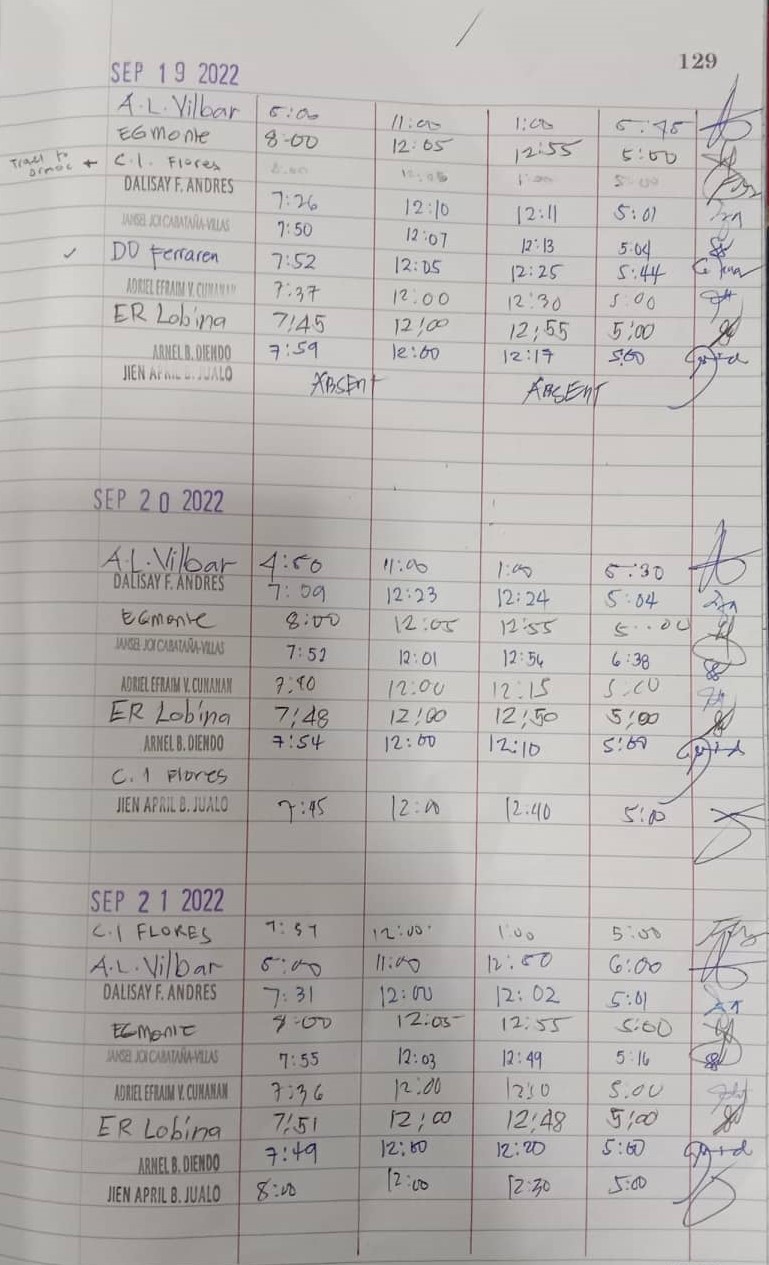 129
SEP 19 2022
A.L. Vilbar 5:00 11:00 1:00 5:45
EGmonte 8:00 12:05 12:55 5:00
Travel to Ormoc + C.I. Flores 8:00 12:05 1:00 5:00
DALISAY F. ANDRES 7:26 12:10 12:11 5:01
JANSEL JOI CABATAÑA-VILLAS 7:50 12:07 12:13 5:04
✓ DD Ferraren 7:52 12:05 12:25 5:44
ADRIEL EFRAIM V. CUNANAN 7:37 12:00 12:30 5:00
ER Lobina 7:45 12:00 12:55 5:00
ARNEL B. DIENDO 7:59 12:00 12:17 5:00
JIEN APRIL B. JUALO ABSENT ABSENT
SEP 20 2022
A.L. Vilbar 4:50 11:00 1:00 5:30
DALISAY F. ANDRES 7:09 12:23 12:24 5:04
EGmonte 8:00 12:05 12:55 5:00
JANSEL JOI CABATAÑA-VILLAS 7:52 12:01 12:54 6:38
ADRIEL EFRAIM V. CUNANAN 7:40 12:00 12:15 5:00
ER Lobina 7:48 12:00 12:50 5:00
ARNEL B. DIENDO 7:54 12:00 12:10 5:00
C.I Flores
JIEN APRIL B. JUALO 7:45 12:00 12:40 5:00
SEP 21 2022
C.I FLORES 7:57 12:00 1:00 5:00
A.L. Vilbar 5:00 11:00 12:50 6:00
DALISAY F. ANDRES 7:31 12:00 12:02 5:01
EGmonte 8:00 12:05 12:55 5:00
JANSEL JOI CABATAÑA-VILLAS 7:55 12:03 12:49 5:16
ADRIEL EFRAIM V. CUNANAN 7:36 12:00 12:10 5:00
ER Lobina 7:51 12:00 12:48 5:00
ARNEL B. DIENDO 7:49 12:00 12:20 5:00
JIEN APRIL B. JUALO 8:00 12:00 12:30 5:00